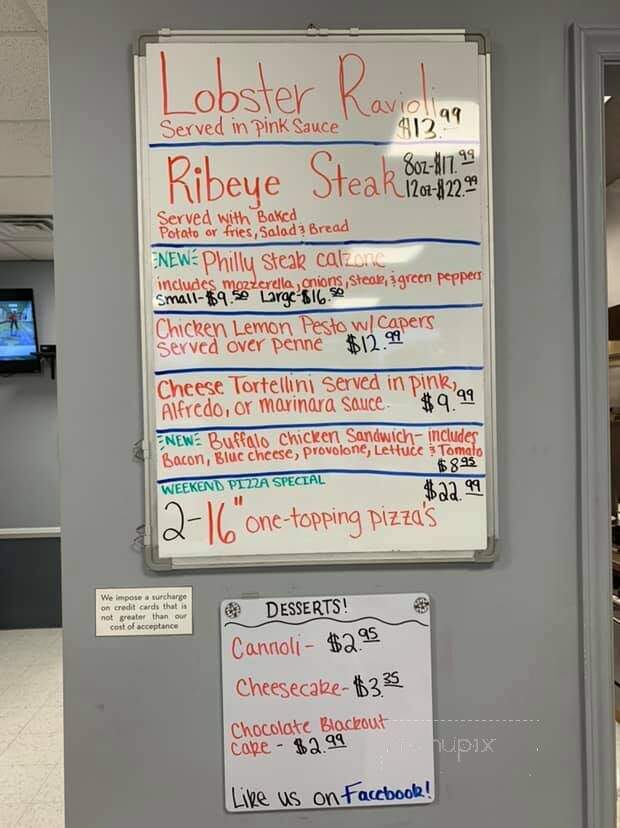 Lobster Ravioli
Served in pink Sauce $13.99
Ribeye Steak 8oz-$17.99
12oz-$22.99
Served with Baked
Potato or fries, Salad & Bread
NEW Philly Steak calzone
includes mozzerella, onions, steak, & green peppers
Small-$9.50 Large-$16.50
Chicken Lemon Pesto w/Capers
Served over penne $12.99
Cheese Tortellini Served in pink,
Alfredo, or marinara sauce. $9.99
NEW Buffalo Chicken Sandwich- includes
Bacon, Blue cheese, provolone, Lettuce & Tomato
$8.95
WEEKEND PIZZA SPECIAL $22.99
2-16" one-topping pizza's
We impose a surcharge
on credit cards that is
not greater than our
cost of acceptance
DESSERTS!
Cannoli- $2.95
Cheesecake-$3.35
Chocolate Blackout
Cake - $2.99
Like us on Facebook!